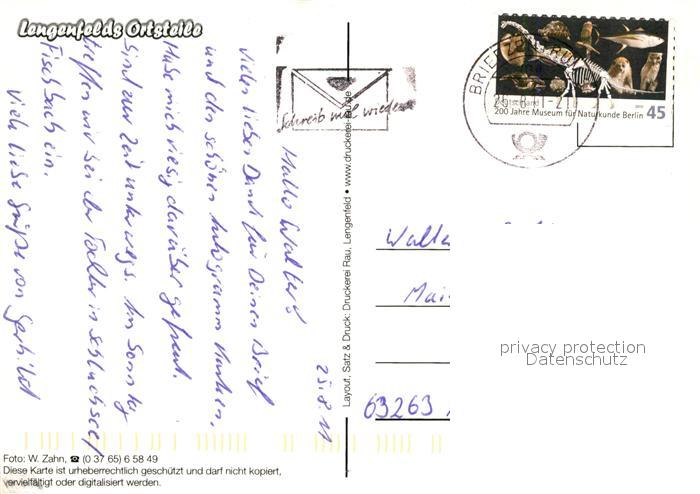 Lengenfelds Ortsteile
25.8.11
Hallo Walter
Vielen lieben Dank für Deinen Brief
und den schönen Autogramm Karten.
Habe mich riesig darüber gefreut.
Sind zur Zeit unterwegs. Am Sonntag
treffen wir bei der Tochter in Schluchsee/
Fischbach ein.
Viele liebe Grüße von
Foto: W. Zahn, ☎ (0 37 65) 6 58 49
Diese Karte ist urheberrechtlich geschützt und darf nicht kopiert,
vervielfältigt oder digitalisiert werden.
Layout, Satz & Druck: Druckerei Rau, Lengenfeld • www.druckerei
Schreib mal wieder
BRIEF
Deutschland
200 Jahre Museum für Naturkunde Berlin
45
Walte
Mai
63263
privacy protection
Datenschutz